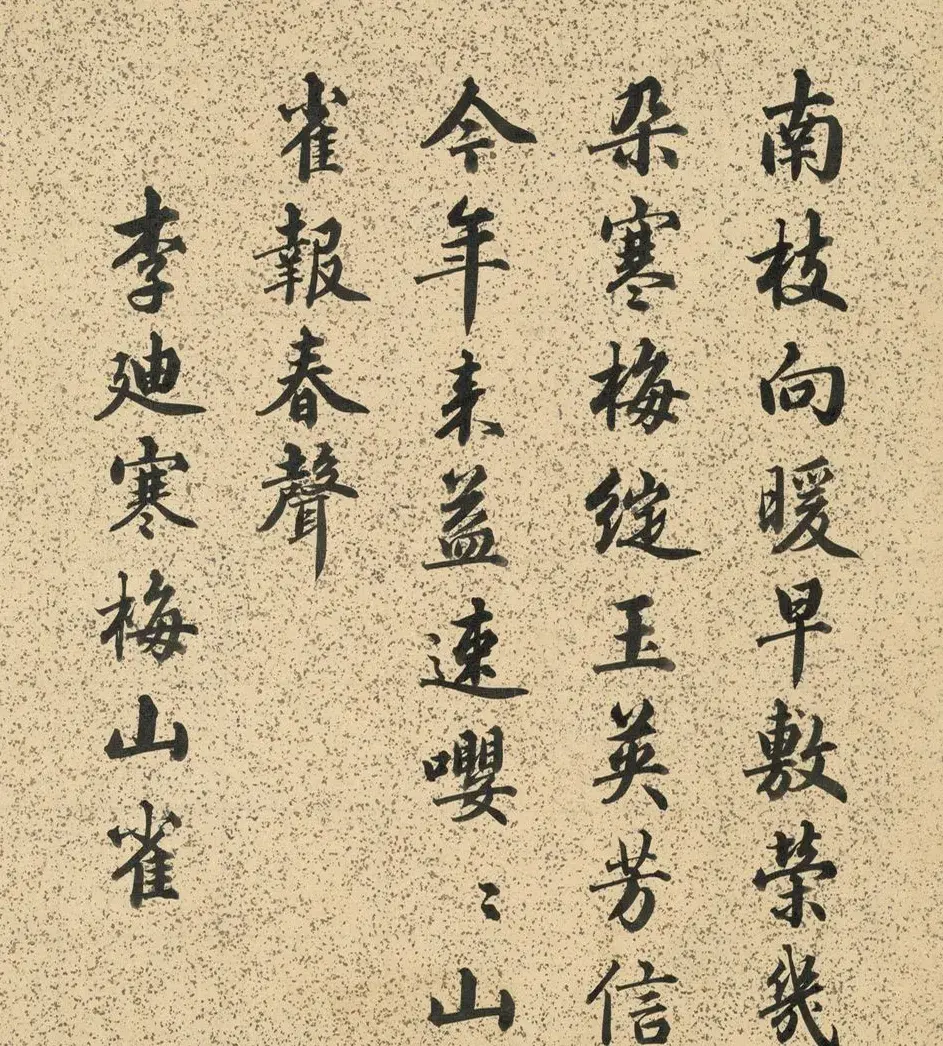 南枝向暖早敷榮幾
朵寒梅綻玉英芳信
今年来益速嚶〻山
雀報春聲
李廸寒梅山雀